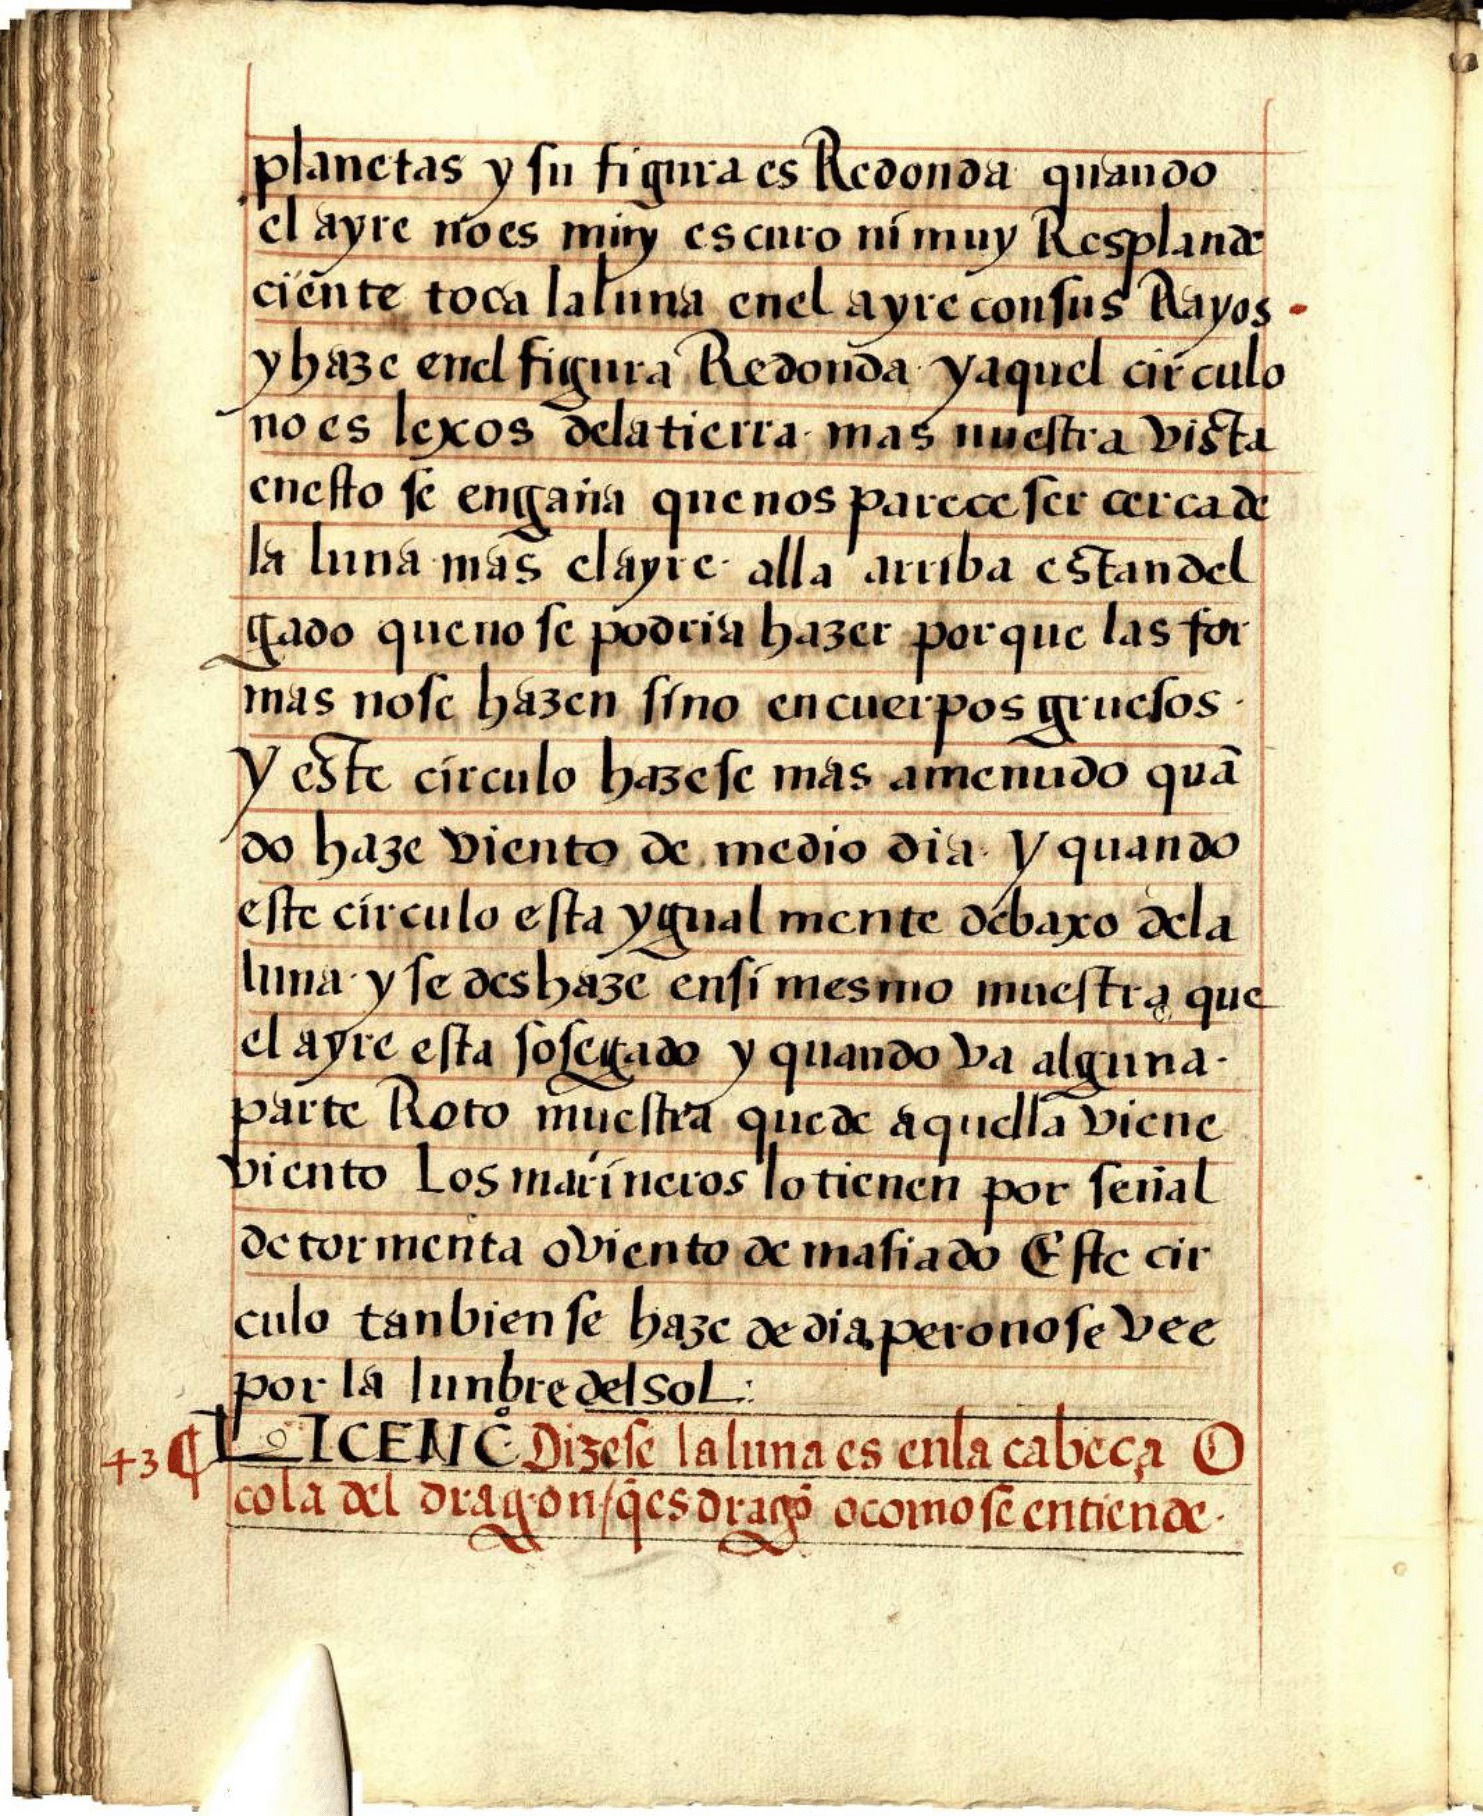 planetas y su figura es Redonda quando
el ayre no es muy escuro ni muy Resplande
ciente toca la luna enel ayre con sus Rayos
y haze enel figura Redonda · y aquel circulo
no es lexos dela tierra · mas nuestra vista
enesto se engaña que nos parece ser cerca de
la luna · mas el ayre · alla arriba es tan del
gado que no se podria hazer porque las for
mas no se hazen sino en cuerpos gruesos ·
y este circulo hazese mas amenudo quã
do haze viento de medio dia · y quando
este circulo esta ygual mente debaxo dela
luna · y se deshaze ensi mesmo muestra que
el ayre esta sosegado y quando va alguna ·
parte Roto muestra que de aquella viene
viento Los marineros lo tienen por señal
de tormenta o viento demasiado Este cir
culo tanbien se haze de dia, pero no se vee
por la lunbre del sol :
43 ¶ LICENCº · Dizese la luna es enla cabeça O
cola del dragon / q̃ es dragõ o como se entiende ·